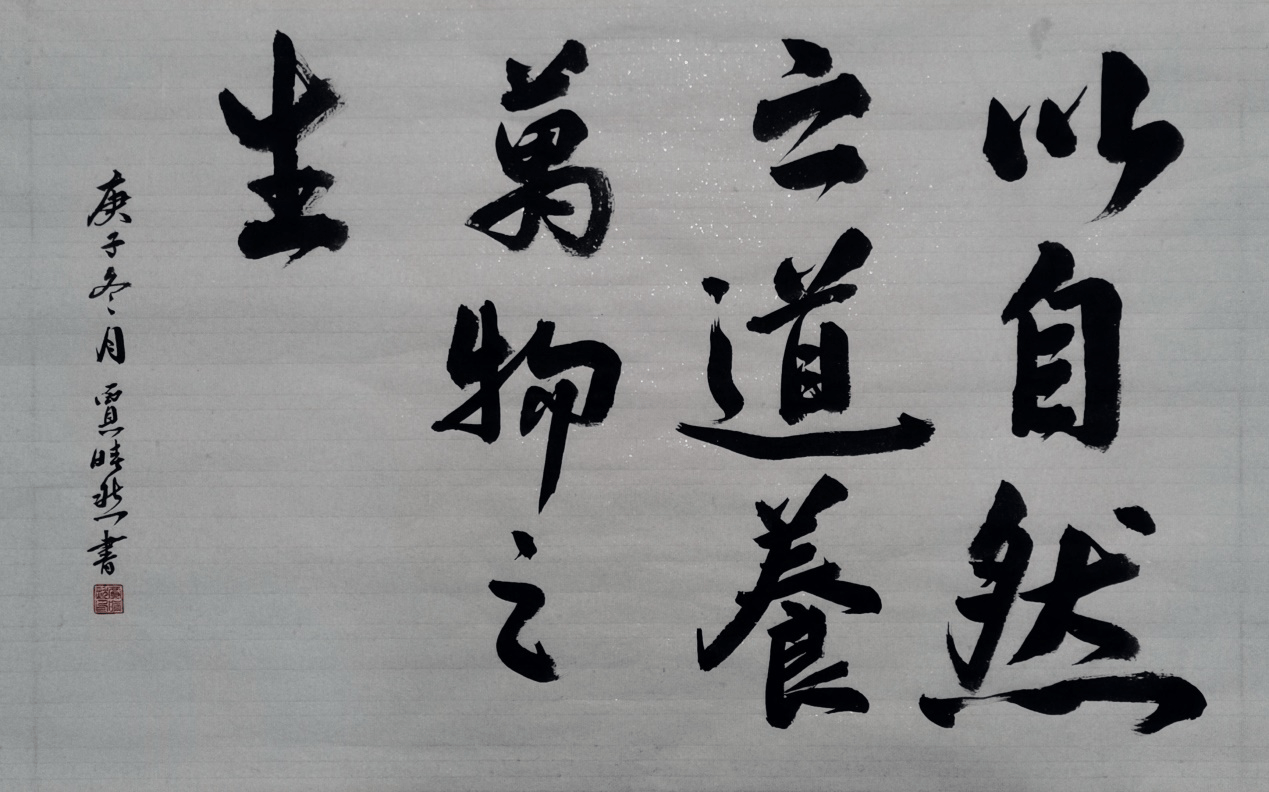 以自然
之道養
萬物之
生
庚子冬月 賈晴然書